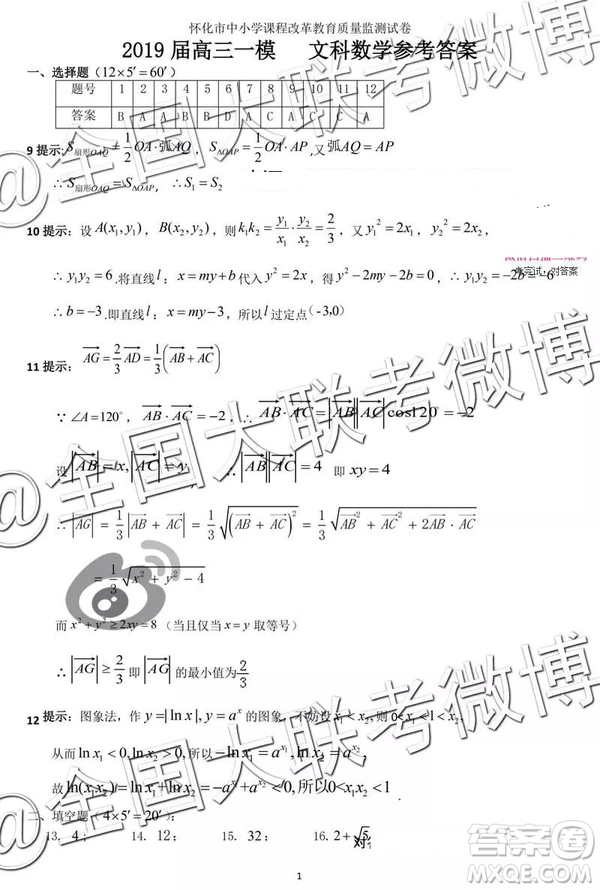 怀化市中小学课程改革教育质量监测试卷
2019 届高三一模 文科数学参考答案
一、选择题（12×5′=60′）
题号 1 2 3 4 5 6 7 8 9 10 11 12
答案 B A A B D A C A C A
9 提示: S扇形OAQ = 1/2 OA·弧AQ，S△OAP = 1/2 OA·AP，又弧AQ = AP
∴ S扇形OAQ = S△OAP，∴ S₁ = S₂
10 提示：设 A(x₁, y₁)，B(x₂, y₂)，则 k₁k₂ = y₁/x₁ · y₂/x₂ = 2/3，又 y₁² = 2x₁，y₂² = 2x₂，
∴ y₁y₂ = 6 .将直线 l：x = my + b 代入 y² = 2x，得 y² − 2my − 2b = 0，∴ y₁y₂ = −2b = 6
对答案
∴ b = −3 .即直线 l：x = my − 3，所以 l 过定点（-3,0）
11 提示： AG = 2/3 AD = 1/3 (AB + AC)
∵ ∠A = 120°，AB · AC = −2，∴ AB · AC = |AB||AC| cos120 = −2
设 |AB| = x, |AC| = y， ∴ |AB||AC| = 4 即 xy = 4
∴ |AG| = 1/3 |AB + AC| = 1/3 √(AB + AC)² = 1/3 √AB² + AC² + 2AB · AC
= 1/3 √x² + y² − 4
而 x² + y² ≥ 2xy = 8（当且仅当 x = y 取等号）
∴ |AG| ≥ 2/3 即 |AG| 的最小值为 2/3
12 提示：图象法，作 y = |ln x|, y = aˣ 的图象，不妨设 x₁ < x₂, 则 0 < x₁ < 1 < x₂
从而 ln x₁ < 0, ln x₂ > 0, 所以 −ln x₁ = a^x₁, ln x₂ = a^x₂
故 ln(x₁x₂) = ln x₁ + ln x₂ = −a^x₁ + a^x₂ < 0, 所以 0 < x₁x₂ < 1
二、填空题（4×5′=20′）
13. 4； 14. 12； 15. 32； 16. 2+√5
对
1
@全国大联考微博
@全国大联考微博
@全国大联考微博
答案圈
MXQE.COM